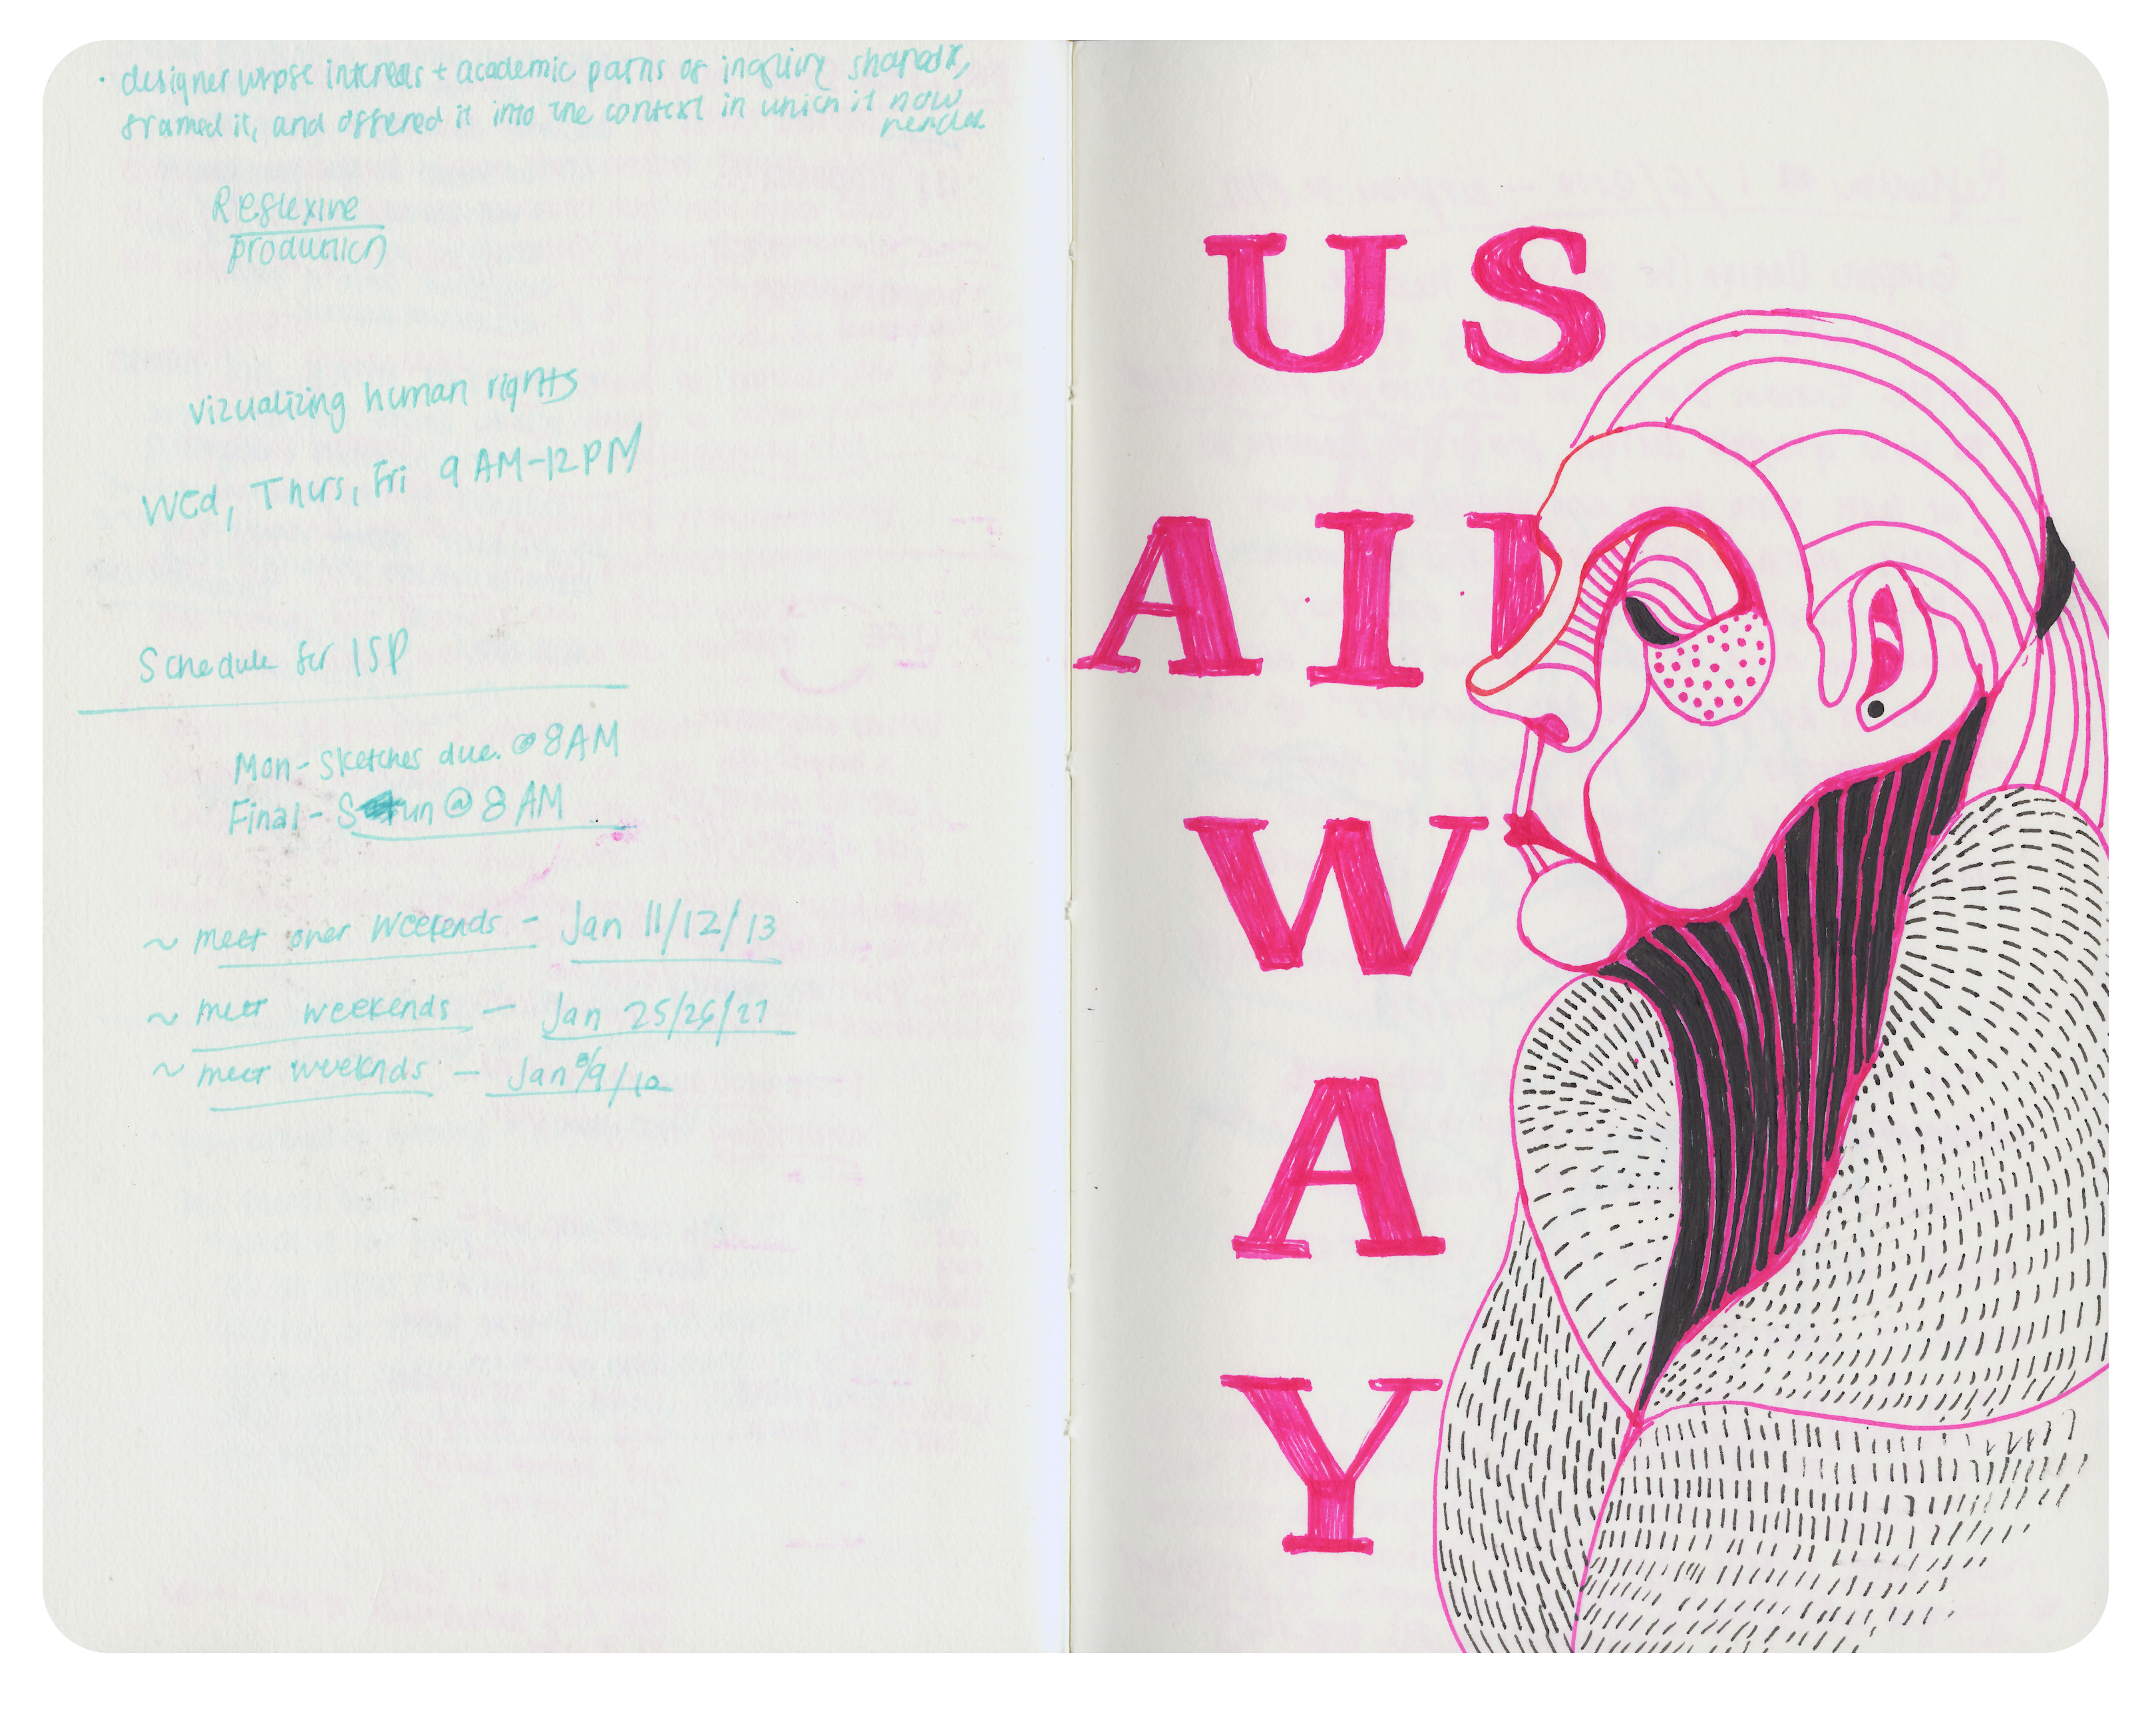 · designer whose interests + academic paths of inquiry shaped it,
framed it, and offered it into the context in which it now
Reflexive
production
vizualizing human rights
Wed, Thurs, Fri 9 AM-12PM
Schedule for ISP
Mon - Sketches due @ 8AM
Final - Sun @ 8 AM
~ meet over weekends - Jan 11/12/13
~ meet weekends - Jan 25/26/27
~ meet weekends - Jan 8/9/10
US
AI
W
A
Y